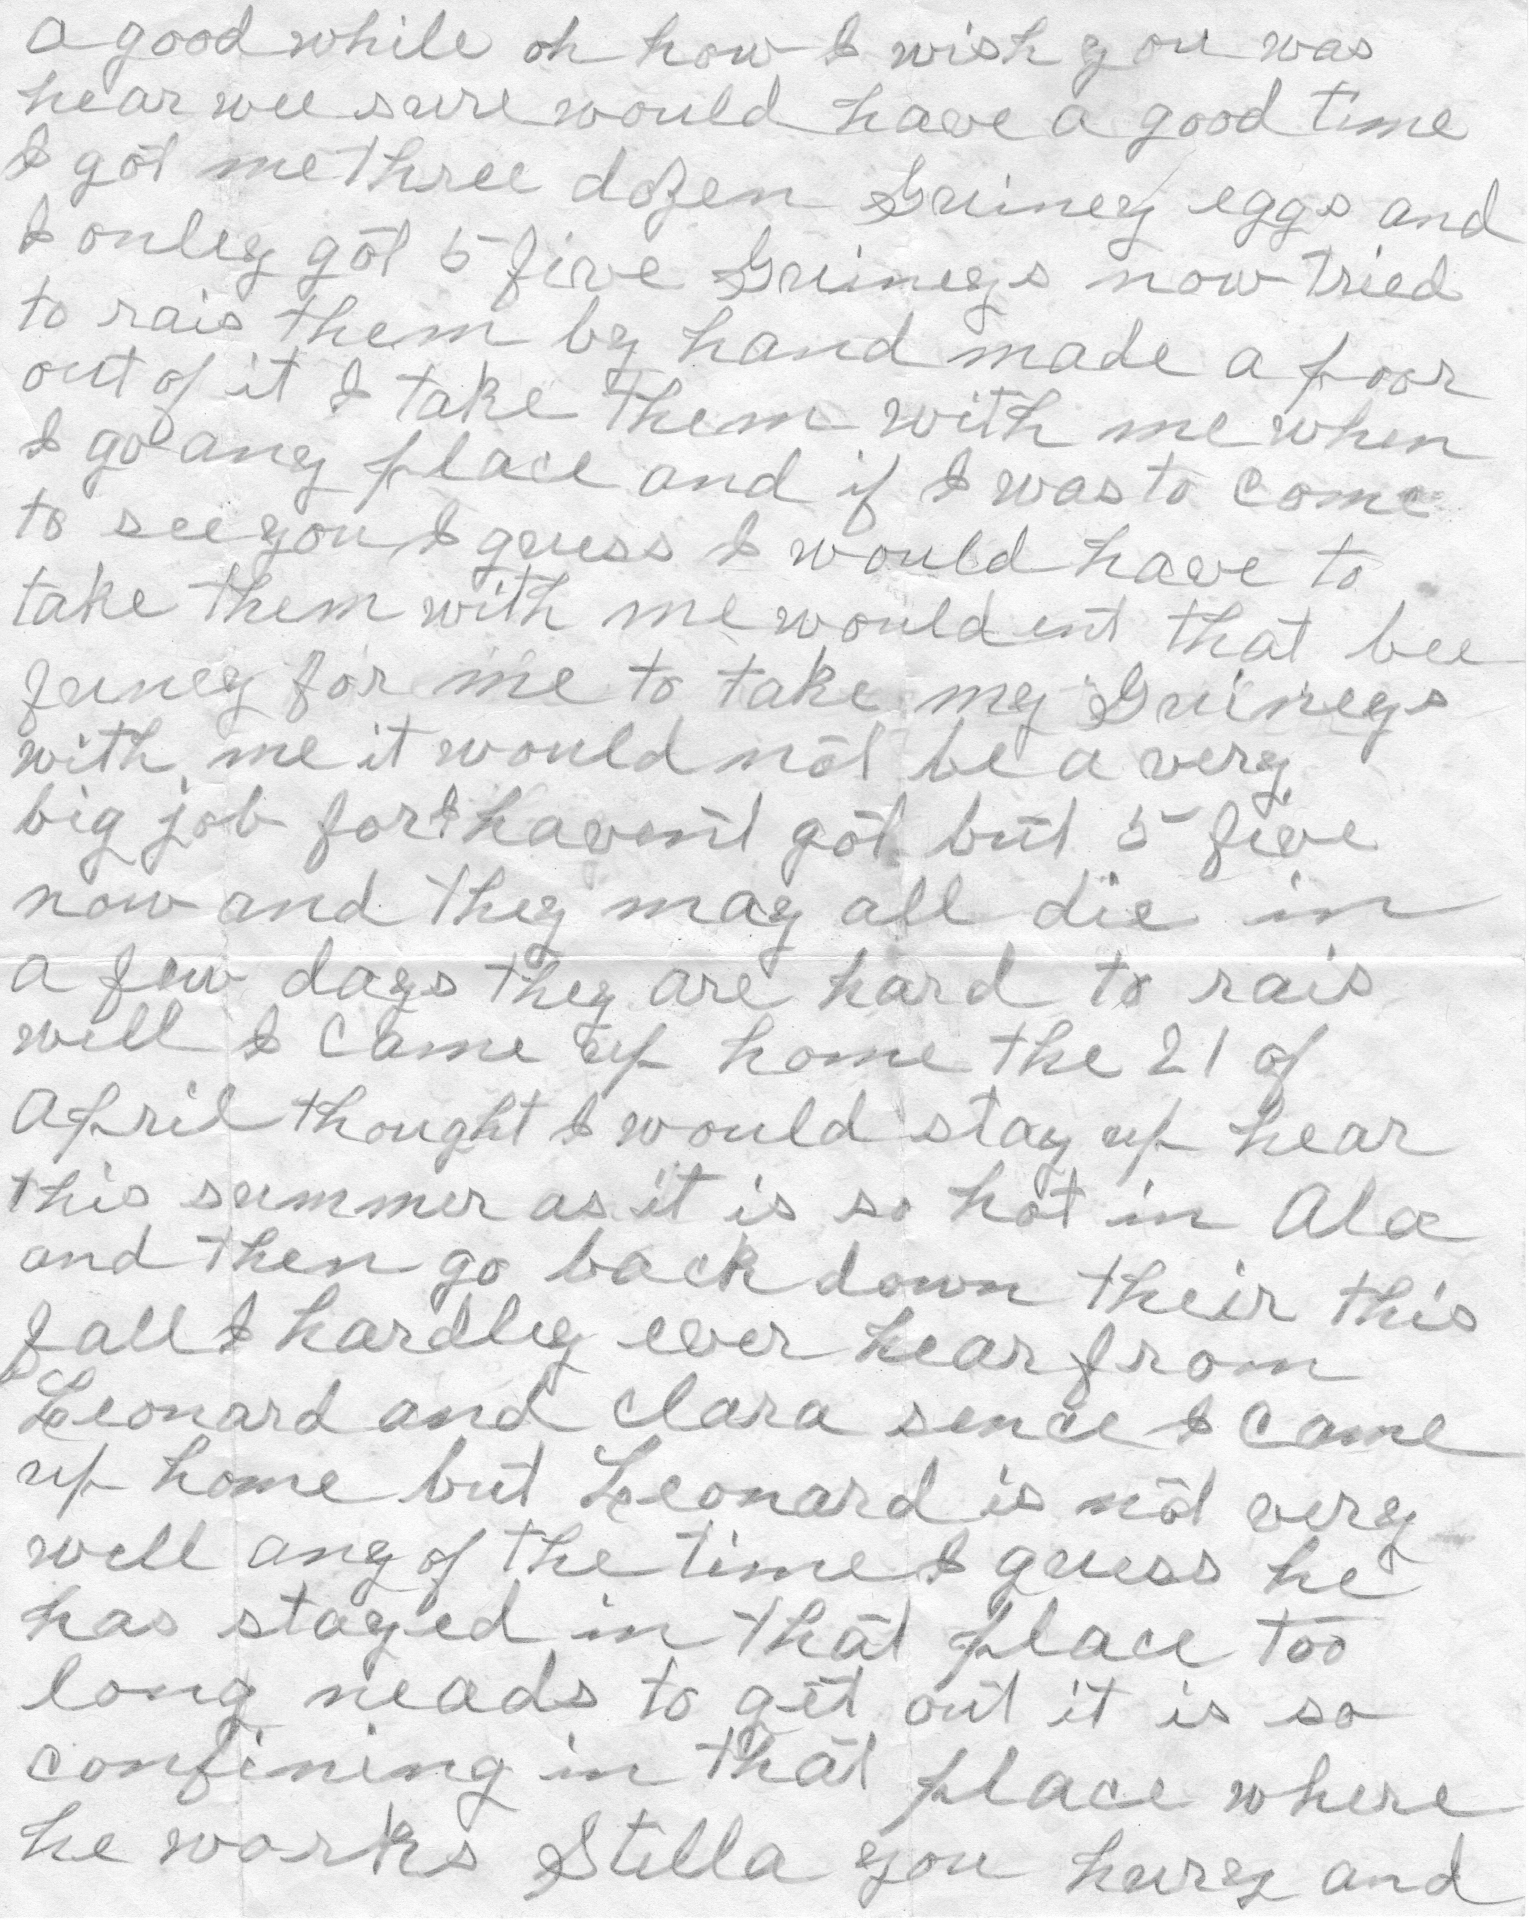 a good while oh how I wish you was
hear wee sure would have a good time
I got me three dozen Guiney eggs and
I onley got 5 five Guineys now tried
to rais them by hand made a poor
out of it I take them with me when
I go any place and if I was to come
to see you I guess I would have to
take them with me wouldent that bee
funey for me to take my Guineys
with me it would not be a very
big job for I havent got but 5 five
now and they may all die in
a few days they are hard to rais
well I came up home the 21 of
April thought I would stay up hear
this summer as it is so hot in Ala
and then go back down their this
fall I hardley ever hear from
Leonard and Clara sence I came
up home but Leonard is not very
well any of the time I guess he
has stayed in that place too
long neads to get out it is so
confining in that place where
he works Stella you hury and